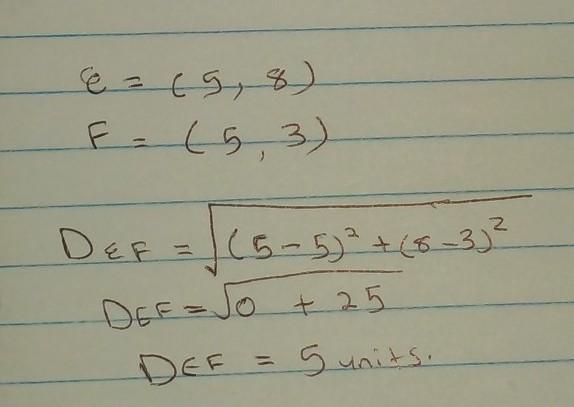 E = (5, 8)
F = (5, 3)
DEF = √(5-5)² + (8-3)²
DEF = √0 + 25
DEF = 5 units.